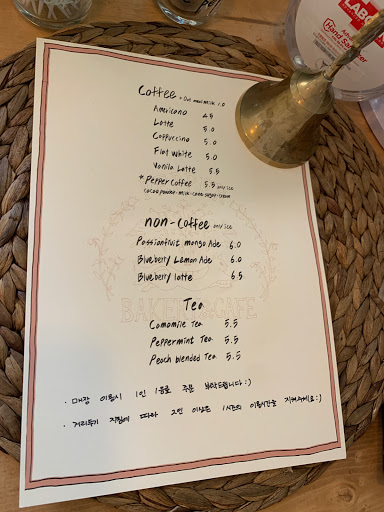 LABO
Hand Sanitizer
Coffee + Oat meal milk 1.0
Americano 4.5
Latte 5.0
Cappuccino 5.0
Flat White 5.0
Vanilla Latte 5.5
* Pepper Coffee 5.5 only ice
cacao powder + milk + cane sugar + cream
non-coffee only ice
Passionfruit mango Ade 6.0
Blueberry Lemon Ade 6.0
Blueberry latte 6.5
BAKERY CAFE
Tea
Camomile Tea 5.5
Peppermint Tea 5.5
Peach blended Tea 5.5
· 매장 이용시 1인 1음료 주문 부탁드립니다 :)
· 거리두기 지침에 따라 2인 이상은 1시간의 이용시간을 지켜주세요 :)